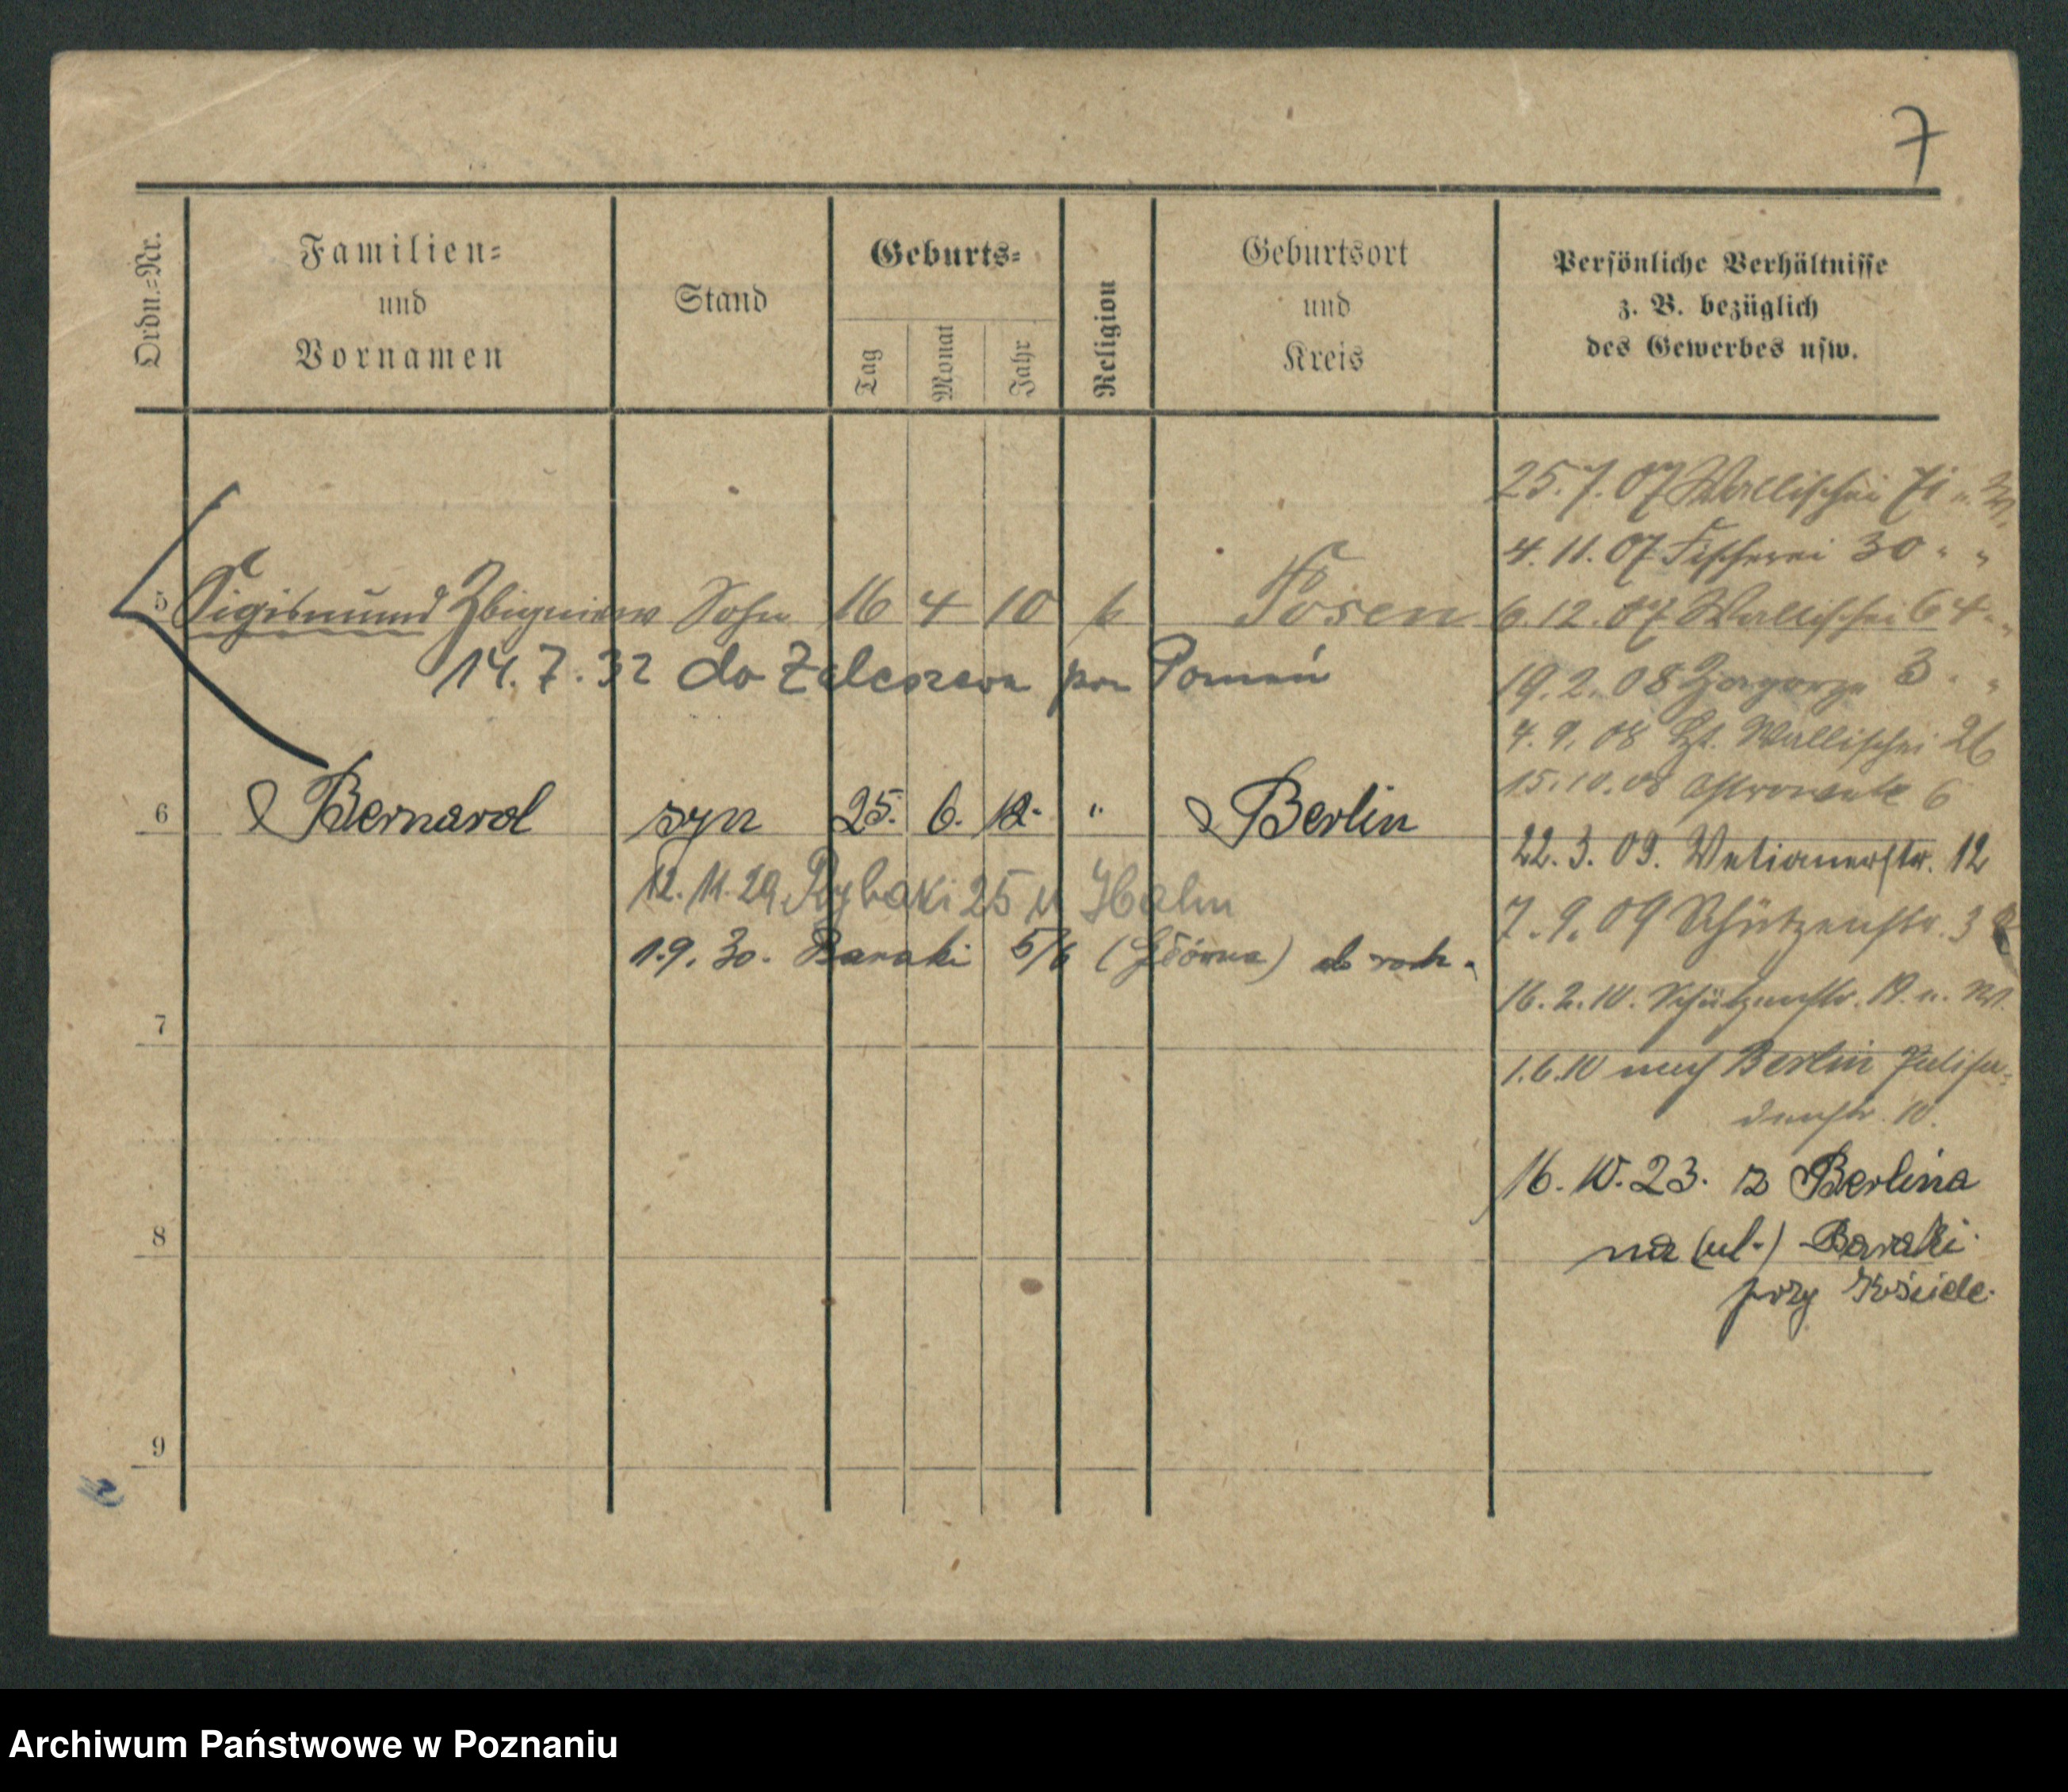 7
Ordn.-Nr.
Familien-
und
Vornamen
Stand
Geburts-
Tag
Monat
Jahr
Religion
Geburtsort
und
Kreis
Persönliche Verhältnisse
z. B. bezüglich
des Gewerbes usw.
25.7.07 Wallischei 71 u. W.
4.11.07 Fischerei 30 " "
5 Sigismund Zbigniew Sohn 16 4 10 k Posen
6.12.07 Wallischei 64 " "
14.7.32 do
19.2.08 Zagorze 3 " "
4.9.08 Wallischei 26
15.10.08 Ostrowek 6
6 Bernard syn 25. 6. 12. " Berlin
22.3.09. Venetianerstr. 12
12.11.29 Rybaki 25 u
7.9.09 Schützenstr. 3
1.9.30. Baraki 5/6 (Główna)
7
16.2.10. Schützenstr. 19. u. W.
1.6.10 nach Berlin Palisa-
denstr. 10.
16.10.23. z Berlina
8
na (ul.) Baraki
przy
9
Archiwum Państwowe w Poznaniu